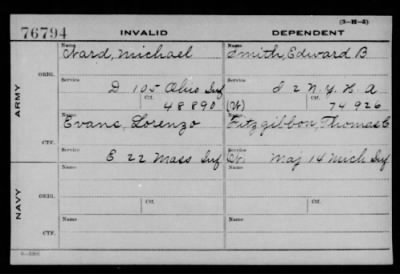 (3-H-3)
76794 INVALID DEPENDENT
Name Name
Ward, Michael Smith, Edward B
ARMY
ORIG.
Service Service
D 105 Ohio Inf I 2 N.Y. H A
Ctf. Ctf.
48890 (W) 74926
Name Name
Evans, Lorenzo Fitzgibbon, Thomas C
CTF.
Service Service
E 22 Mass Inf Maj 14 Mich Inf
NAVY
Name Name
ORIG.
Service Ctf. Service Ctf.
Name Name
CTF.
Service Service